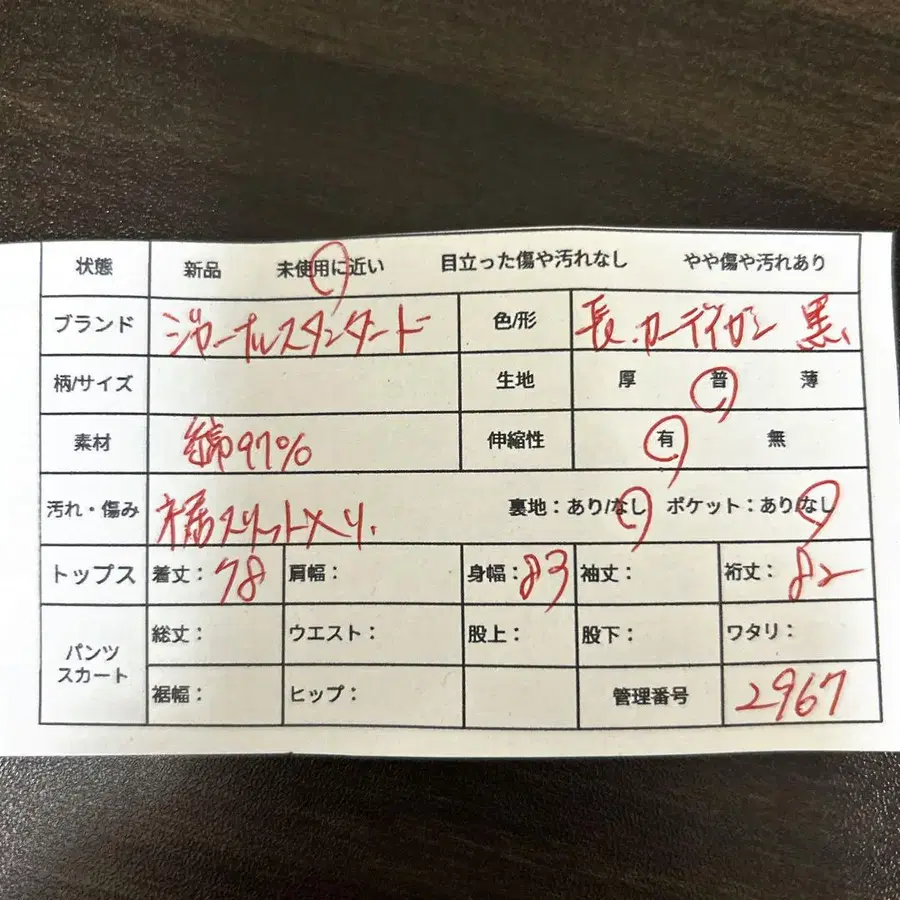 状態 新品 未使用に近い 目立った傷や汚れなし やや傷や汚れあり
ブランド ジャーナルスタンダード 色/形 長.カーディガン 黒
柄/サイズ 生地 厚 普 薄
素材 綿97% 伸縮性 有 無
汚れ・傷み 裾スリット入り. 裏地：あり/なし ポケット：あり/なし
トップス 着丈：78 肩幅： 身幅：83 袖丈： 裄丈：82
パンツ スカート 総丈： ウエスト： 股上： 股下： ワタリ：
裾幅： ヒップ： 管理番号 2967